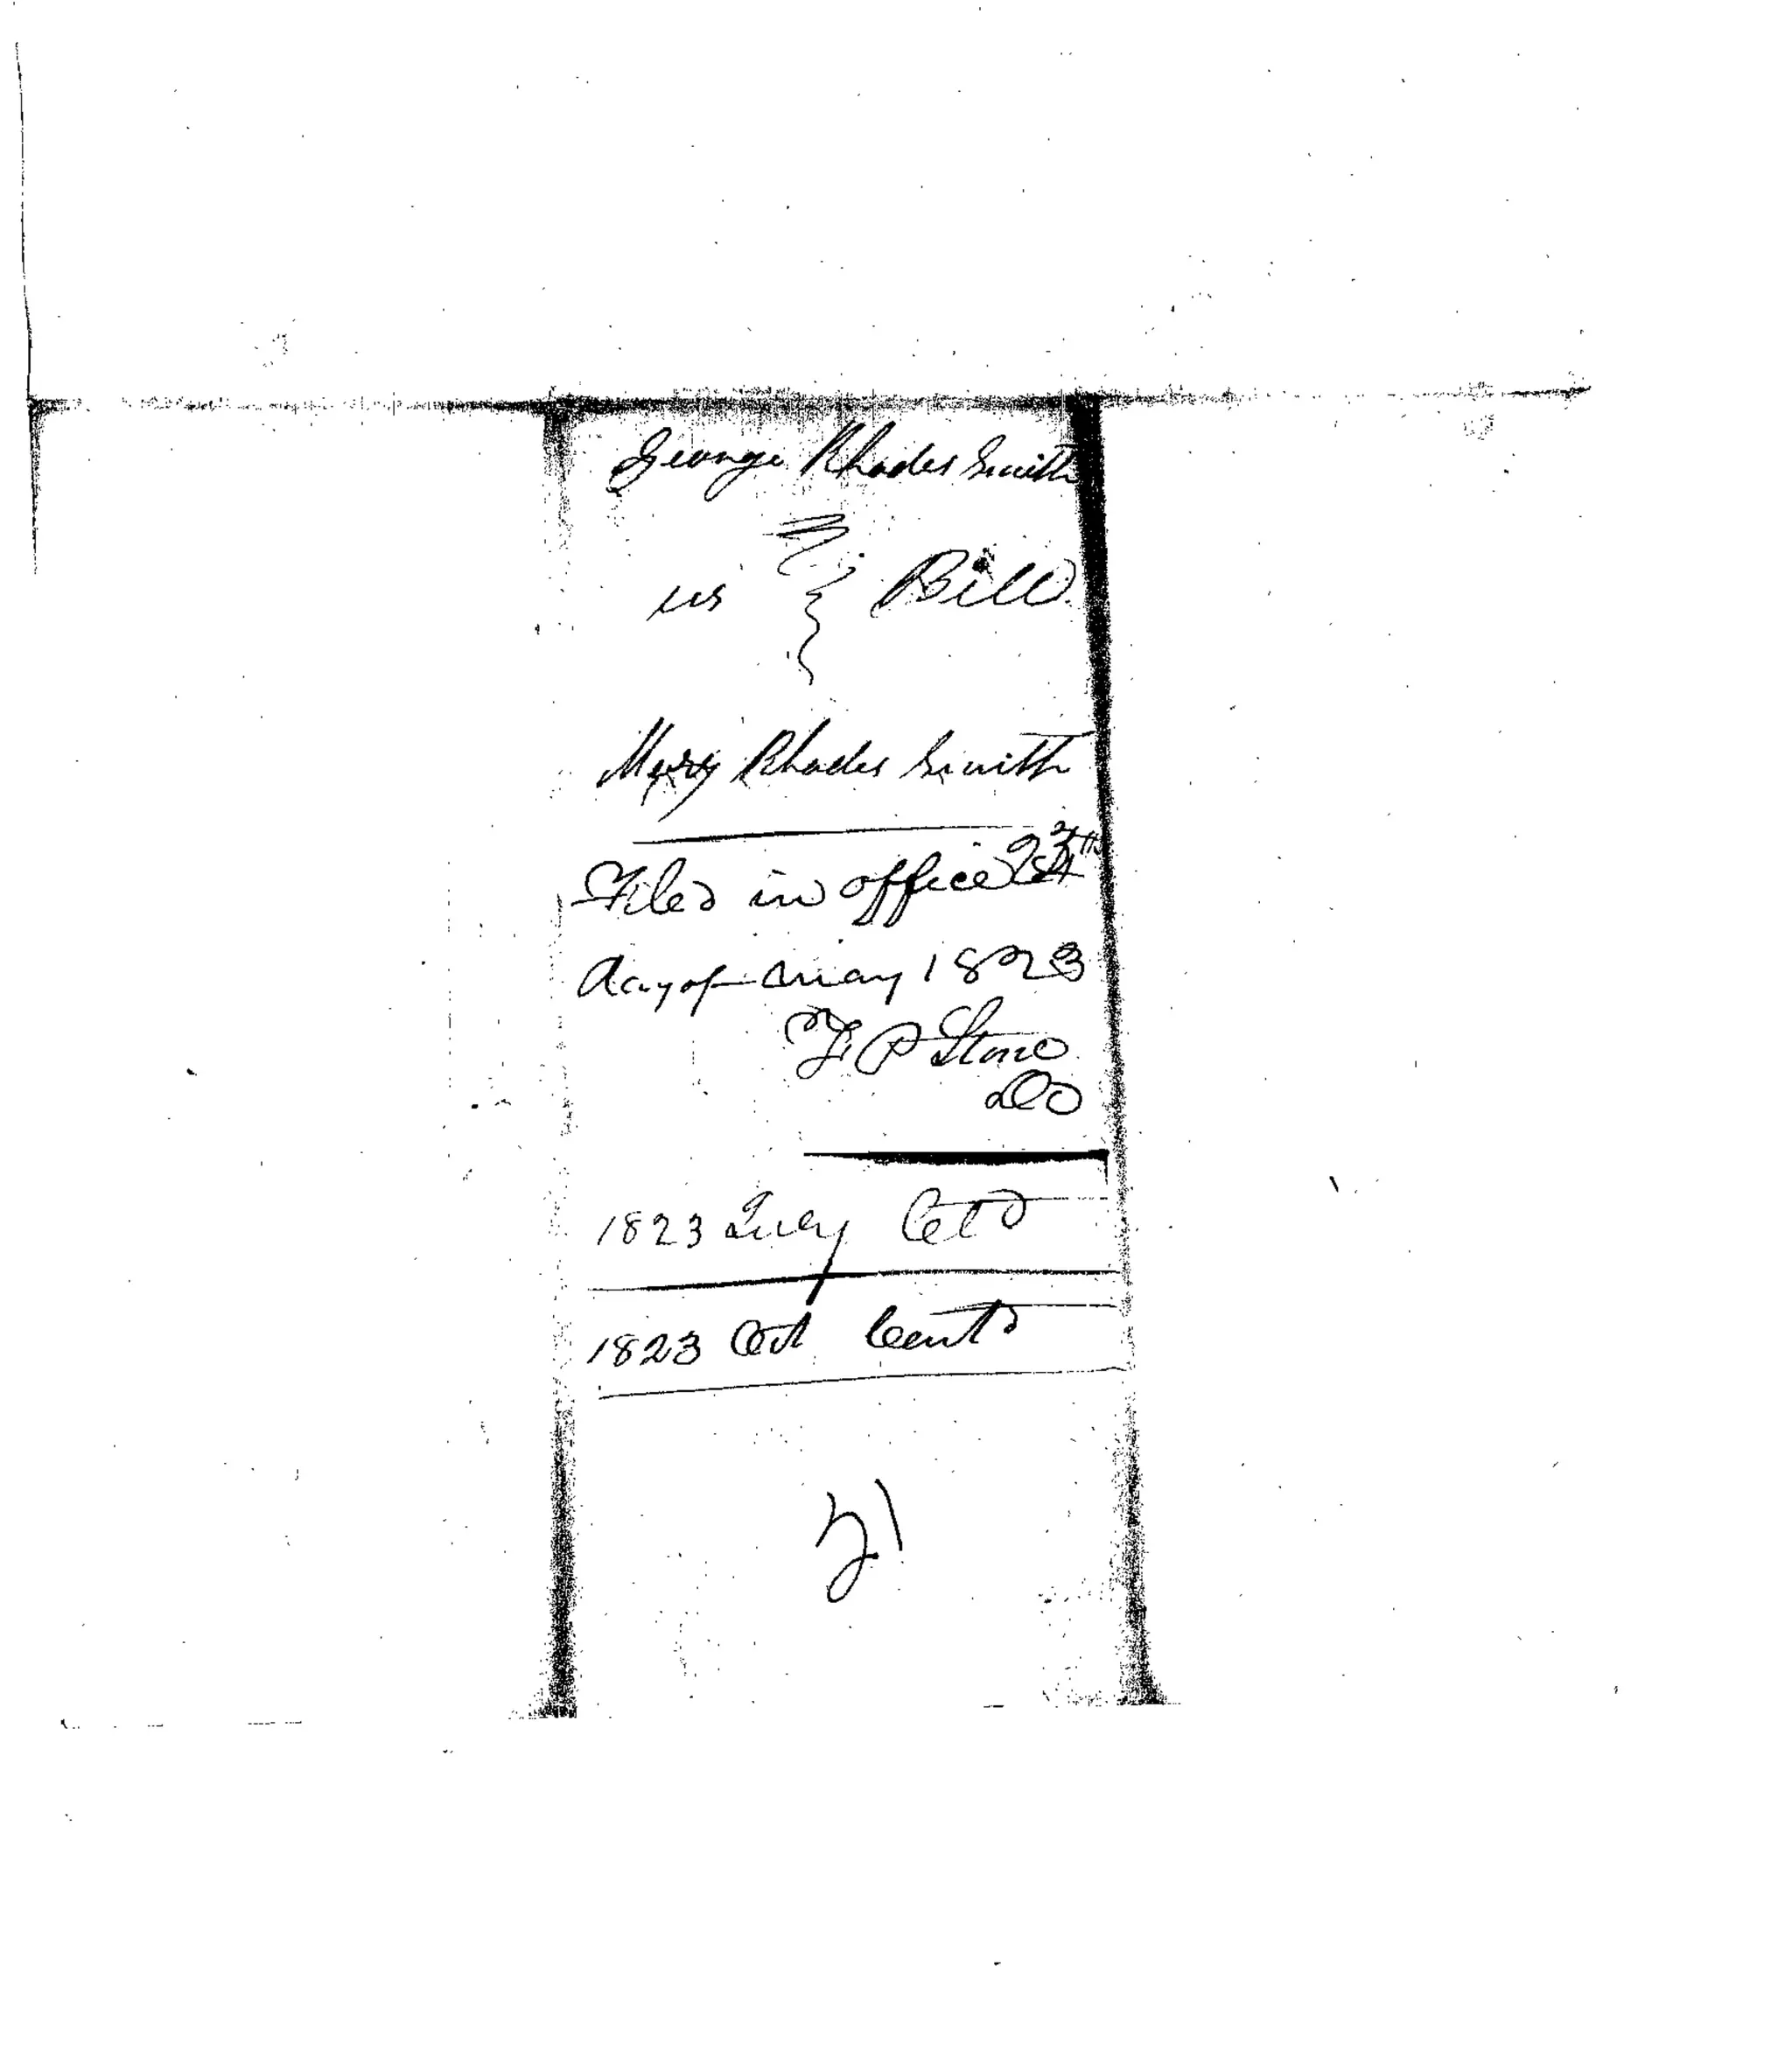 George Rhodes Smith
vs } Bill
Mary Rhodes Smith
Filed in office
day of May 1823
P Stone
1823 July Ctd
1823 Oct Contd
21